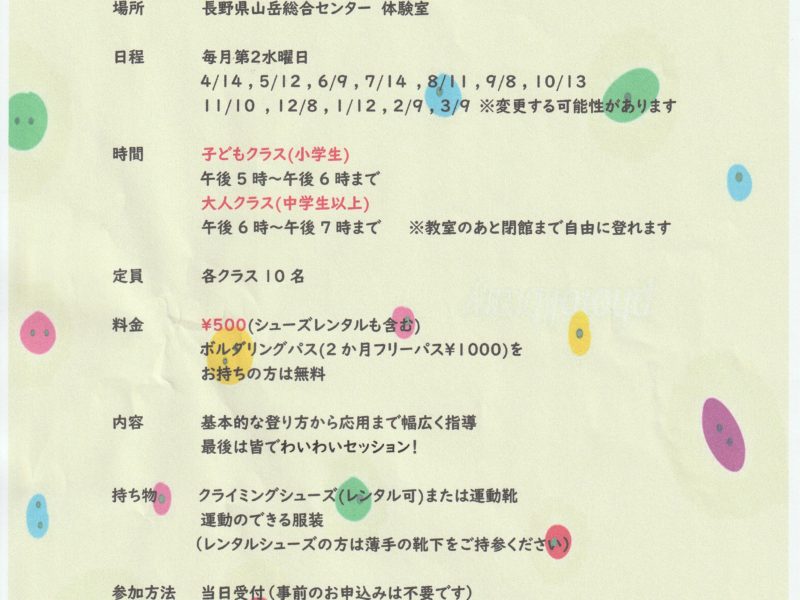 場所 長野県山岳総合センター 体験室
日程 毎月第2水曜日
4/14 , 5/12 , 6/9 , 7/14 , 8/11 , 9/8 , 10/13
11/10 , 12/8 , 1/12 , 2/9 , 3/9 ※変更する可能性があります
時間 子どもクラス(小学生)
午後5時～午後6時まで
大人クラス(中学生以上)
午後6時～午後7時まで ※教室のあと閉館まで自由に登れます
定員 各クラス10名
料金 ¥500(シューズレンタルも含む)
ボルダリングパス(2か月フリーパス¥1000)を
お持ちの方は無料
内容 基本的な登り方から応用まで幅広く指導
最後は皆でわいわいセッション!
持ち物 クライミングシューズ(レンタル可)または運動靴
運動のできる服装
(レンタルシューズの方は薄手の靴下をご持参ください)
参加方法 当日受付(事前のお申込みは不要です)